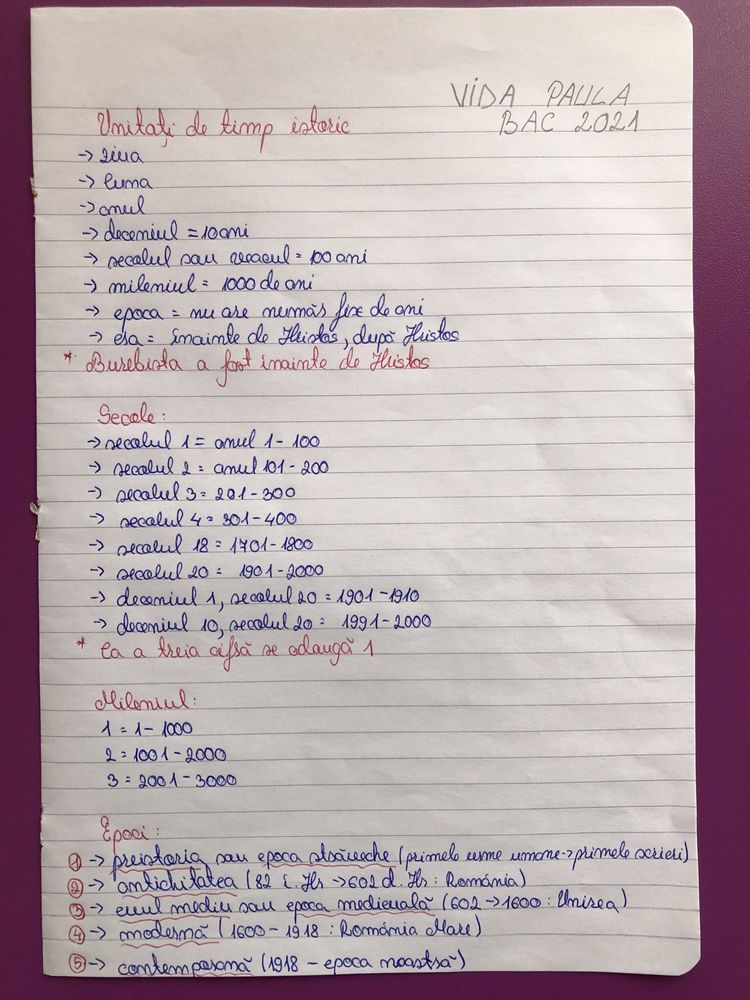 VIDA PAULA
BAC 2021
Unitați de timp istoric
→ ziua
→ luna
→ anul
→ deceniul = 10 ani
→ secolul sau veacul = 100 ani
→ mileniul = 1000 de ani
→ epoca = nu are număr fix de ani
→ era = înainte de Hristos, după Hristos
* Burebista a fost înainte de Hristos
Secole:
→ secolul 1 = anul 1 - 100
→ secolul 2 = anul 101 - 200
→ secolul 3 = 201 - 300
→ secolul 4 = 301 - 400
→ secolul 18 = 1701 - 1800
→ secolul 20 = 1901 - 2000
→ deceniul 1, secolul 20 = 1901 - 1910
→ deceniul 10, secolul 20 = 1991 - 2000
* La a treia cifră se adaugă 1
Mileniul:
1 = 1 - 1000
2 = 1001 - 2000
3 = 2001 - 3000
Epoci:
① → preistoria sau epoca străveche (primele urme umane → primele scrieri)
② → antichitatea (82 î. Hs → 602 d. Hs : România)
③ → evul mediu sau epoca medievală (602 → 1600 : Unirea)
④ → modernă (1600 - 1918 : România Mare)
⑤ → contemporană (1918 - epoca noastră)